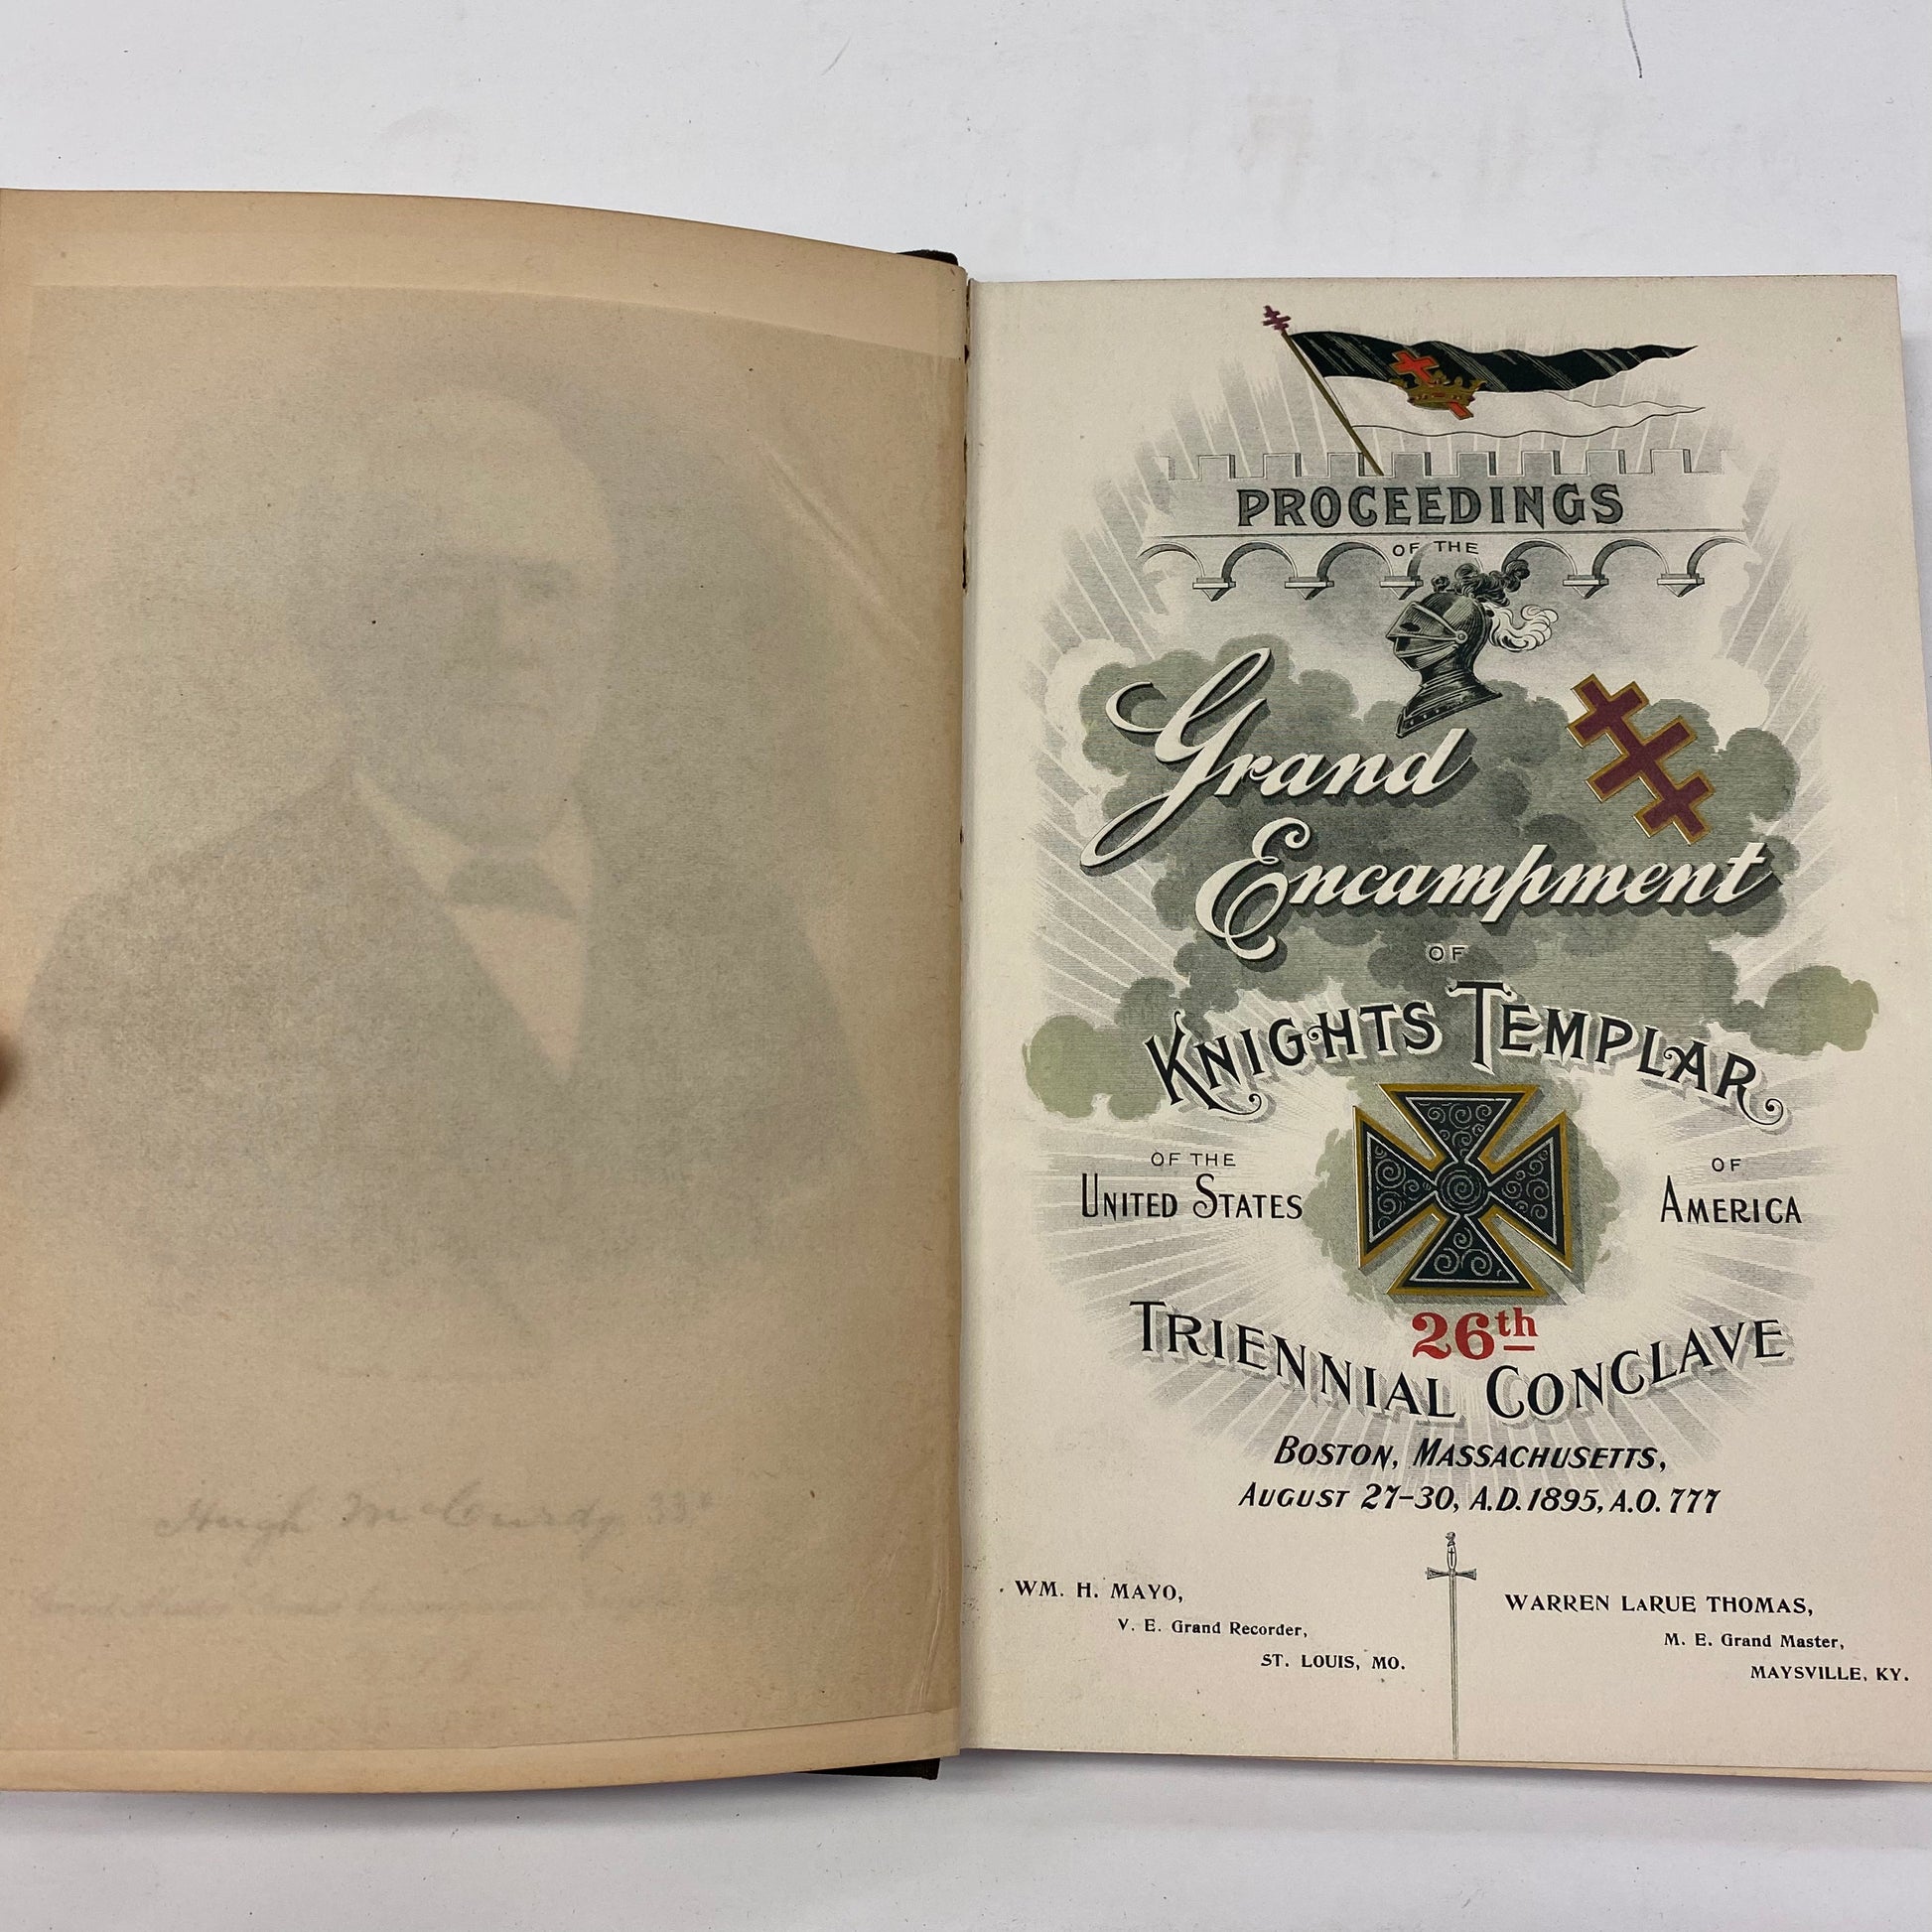 Hugh McCurdy 33°
PROCEEDINGS
OF THE
Grand
Encampment
OF
KNIGHTS TEMPLAR
OF THE
UNITED STATES
OF
AMERICA
26th
TRIENNIAL CONCLAVE
BOSTON, MASSACHUSETTS,
AUGUST 27-30, A.D. 1895, A.O. 777
WM. H. MAYO,
V. E. Grand Recorder,
ST. LOUIS, MO.
WARREN LARUE THOMAS,
M. E. Grand Master,
MAYSVILLE, KY.